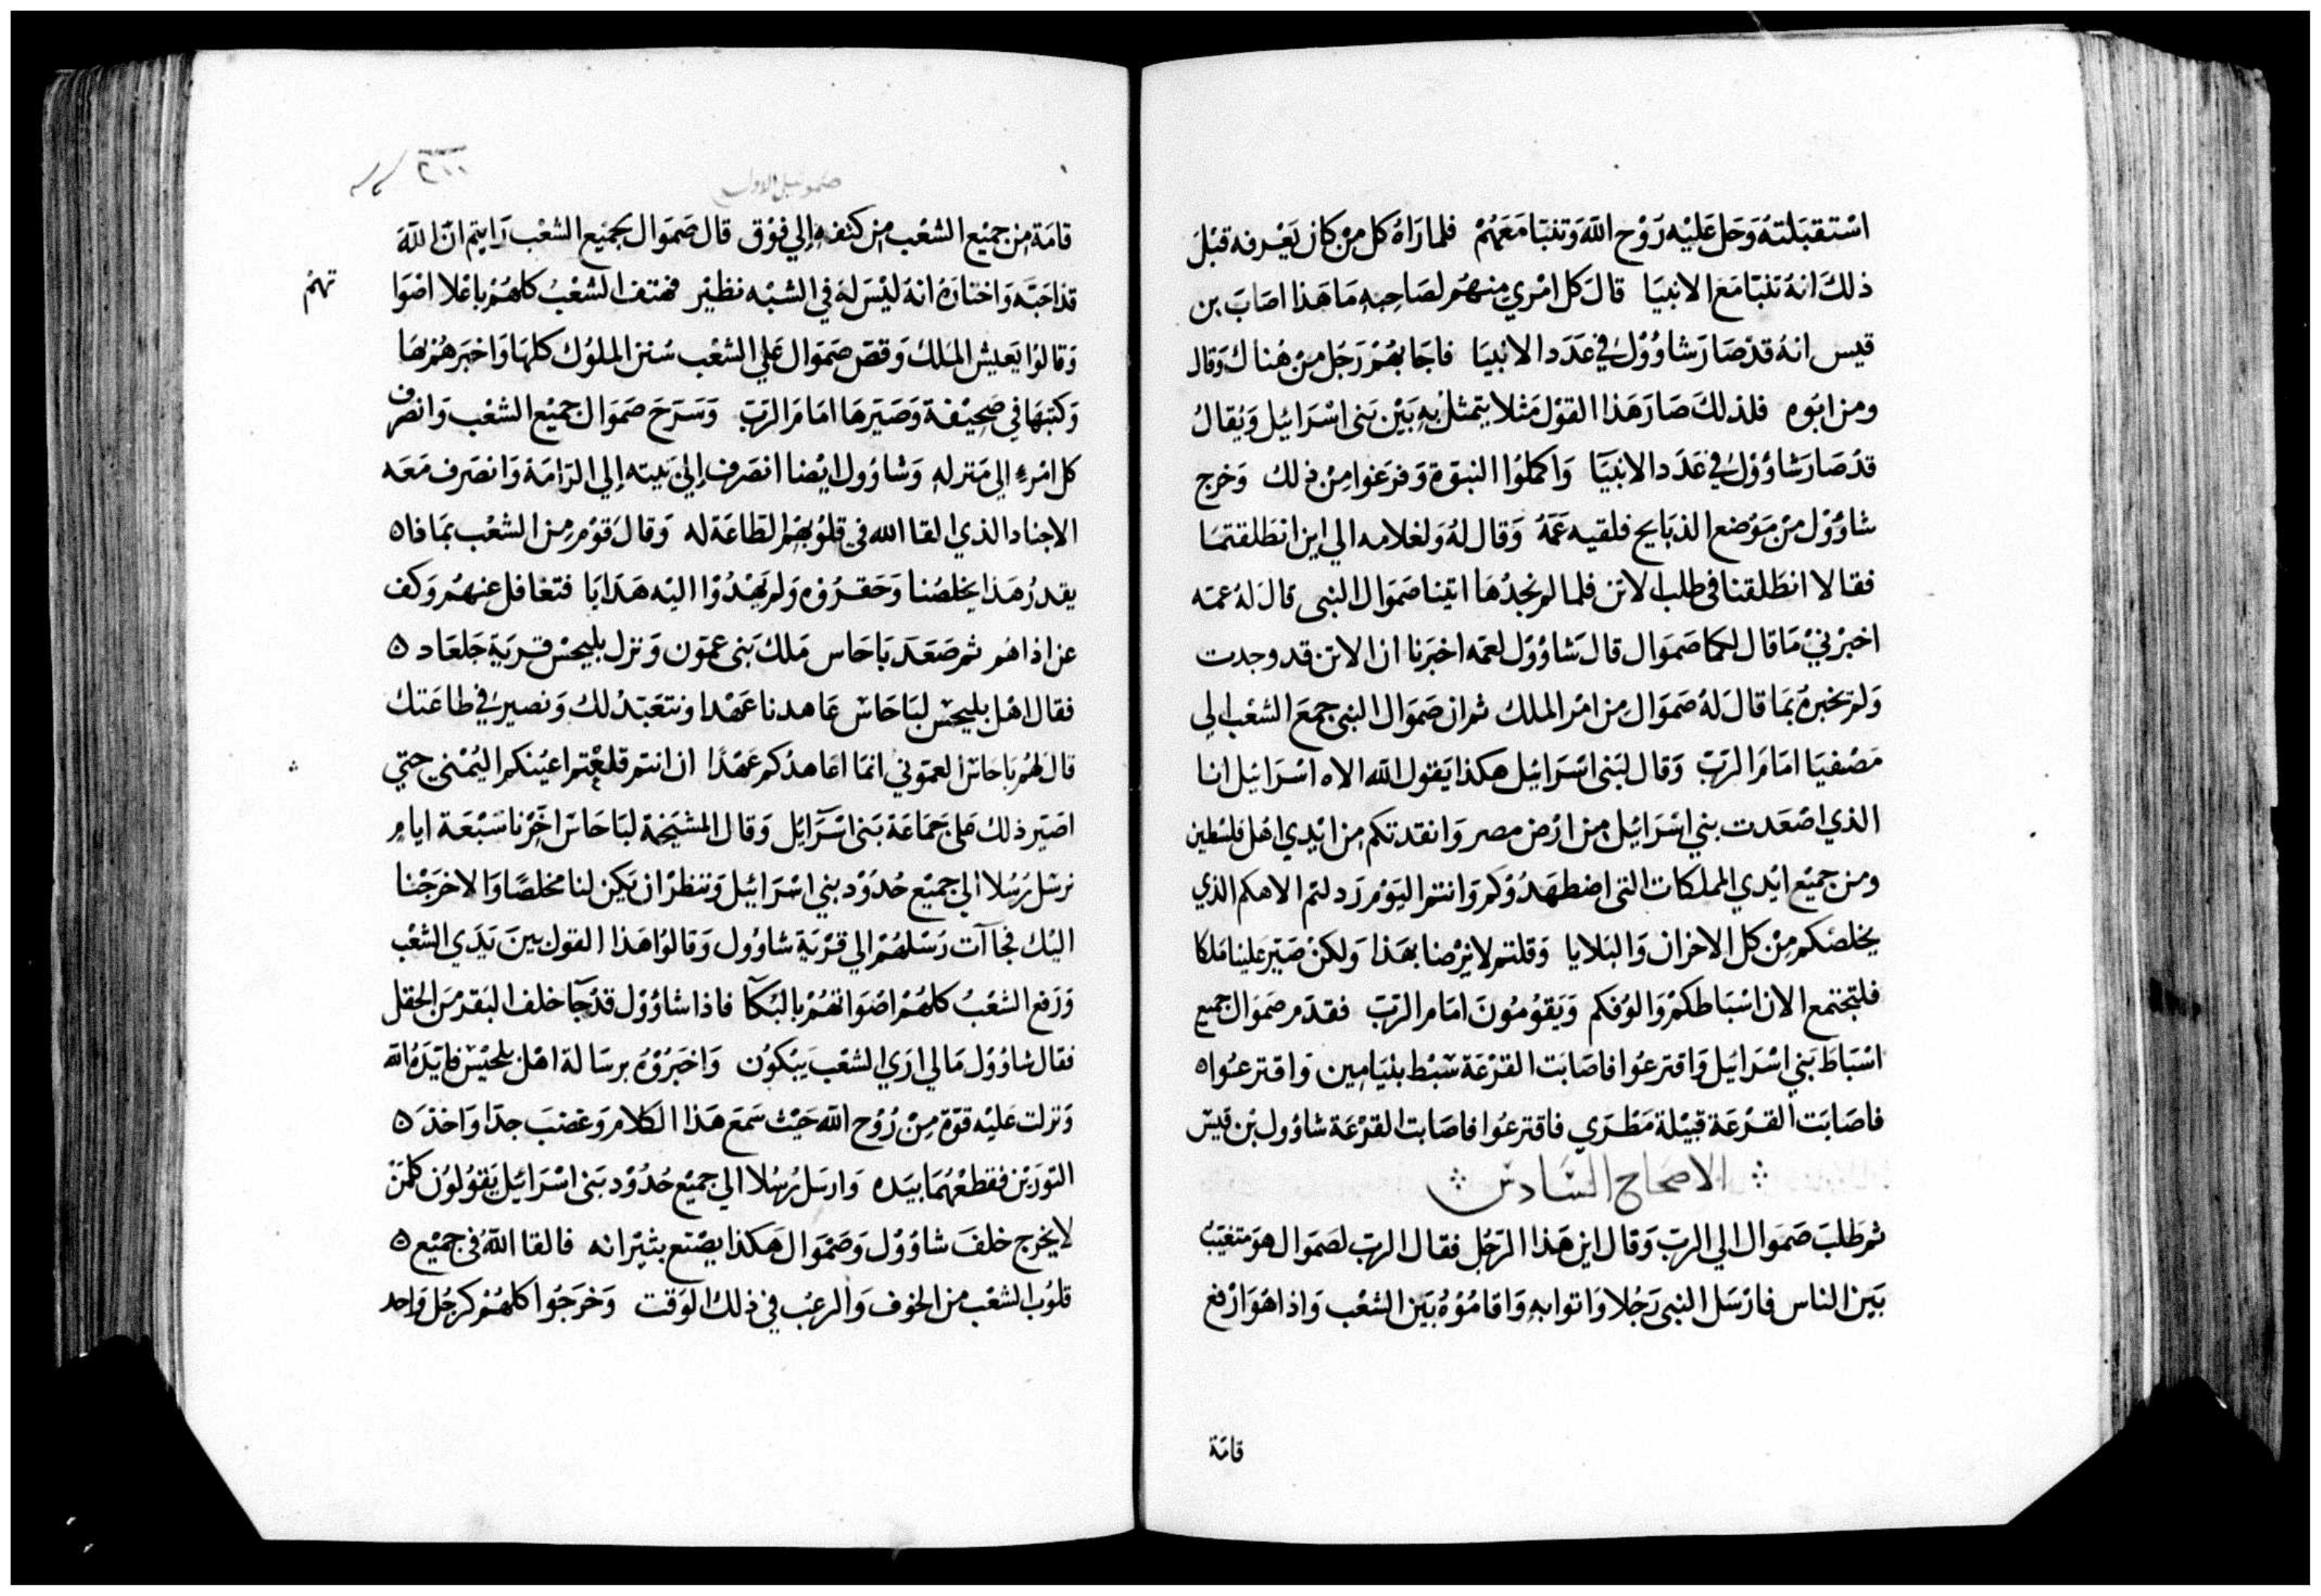 استقبلته وحل عليه روح الله وتنبا معهم فلما راه كل من كان يعرفه قبل
ذلك انه تنبا مع الانبيا قال كل امري منهم لصاحبه ما هذا اصاب بن
قيس انه قد صار شاوول في عدد الانبيا فاجابهم رجل من هناك وقال
ومن ابوه فلذلك صار هذا القول مثلا يتمثل به بين بني اسرائيل ويقال
قد صار شاوول في عدد الانبيا واكملوا النبوة وفرغوا من ذلك وخرج
شاوول من موضع الذبايح فلقيه عمه وقال له ولغلامه الي اين انطلقتما
فقالا انطلقنا في طلب الاتن فلما لم نجدها اتينا صموال النبي قال له عمه
اخبرني ما قال لكما صموال قال شاوول لعمه اخبرنا ان الاتن قد وجدت
ولم تخبره بما قال له صموال من امر الملك ثم ان صموال النبي جمع الشعب الي
مصفيا امام الرب وقال لبني اسرائيل هكذا يقول الله الاه اسرائيل انا
الذي اصعدت بني اسرائيل من ارض مصر وانقدتكم من ايدي اهل فلسطين
ومن جميع ايدي المملكات التي اضطهدوكم وانتم اليوم ردلتم الاهكم الذي
يخلصكم من كل الاحزان والبلايا وقلتم لا نرضا بهذا ولكن صير علينا ملكا
فلتجتمع الان اسباطكم والوفكم ويقومون امام الرب فقدم صموال جميع
اسباط بني اسرائيل واقترعوا فاصابت القرعة سبط بنيامين واقترعوا ٥
فاصابت القرعة قبيلة مطري فاقترعوا فاصابت القرعة شاوول بن قيس
الاصحاح السادس
ثم طلب صموال الي الرب وقال اين هذا الرجل فقال الرب لصموال هو متغيب
بين الناس فارسل النبي رجلا واتوا به واقاموه بين الشعب واذا هو ارفع
قامة
صموئيل الاول
قامة من جميع الشعب من كتفه إلي فوق قال صموال لجميع الشعب رايتم ان الله
قد احبه واختاره انه ليس له في الشبه نظير فهتف الشعب كلهم باعلا اصوا
تهم
وقالوا يعيش الملك وقص صموال علي الشعب سنن الملوك كلها واخبرهم بها
وكتبها في صحيفة وصيرها امام الرب وسرح صموال جميع الشعب وانصرف
كل امرء الي منزله وشاوول ايضا انصرف إلي بيته إلي الرامة وانصرف معه
الاجناد الذي القا الله في قلوبهم الطاعة له وقال قوم من الشعب بماذا ٥
يقدر هذا يخلصنا وحقروه ولم يهدوا اليه هدايا فتغافل عنهم وكف
عن اذاهم ثم صعد باحاس ملك بني عمون ونزل بليحس قرية جلعاد ٥
فقال اهل بليحس لباحاس عاهدنا عهدا ونتعبد لك ونصير في طاعتك
قال لهم باحاس العموني انما اعاهدكم عهدا ان انتم قلعتم اعينكم اليمني حتي
اصير ذلك علي جماعة بني اسرايل وقال المشيخة لباحاس اخرنا سبعة ايام
نرسل رسلا الي جميع حدود بني اسرائيل وننظر ان يكن لنا مخلصا والا خرجنا
اليك فجاآت رسلهم الي قرية شاوول وقالوا هذا القول بين يدي الشعب
ورفع الشعب كلهم اصواتهم بالبكآ فاذا شاوول قد جآ خلف البقر من الحقل
فقال شاوول ما لي اري الشعب يبكون واخبروه برسالة اهل بلحيس
ونزلت عليه قوة من روح الله حيث سمع هذا الكلام وغضب جدا واخذ ٥
الثورين فقطعهما بيده وارسل رسلا الي جميع حدود بني اسرائيل يقولون كلمن
لا يخرج خلف شاوول وصموال هكذا يصنع بثيرانه فالقا الله في جميع ٥
قلوب الشعب من الخوف والرعب في ذلك الوقت وخرجوا كلهم كرجل واحد